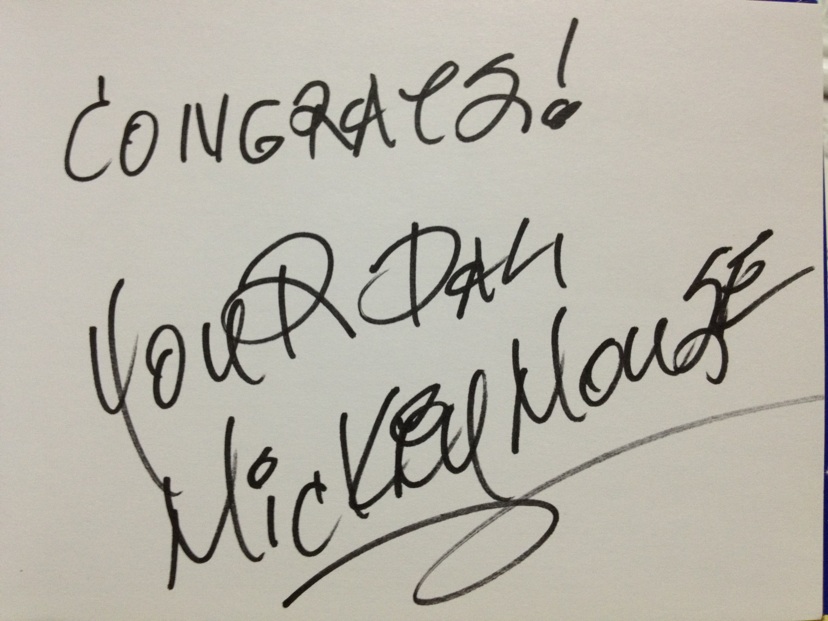 CONGRATS!
YOUR PAL
MICKEY MOUSE